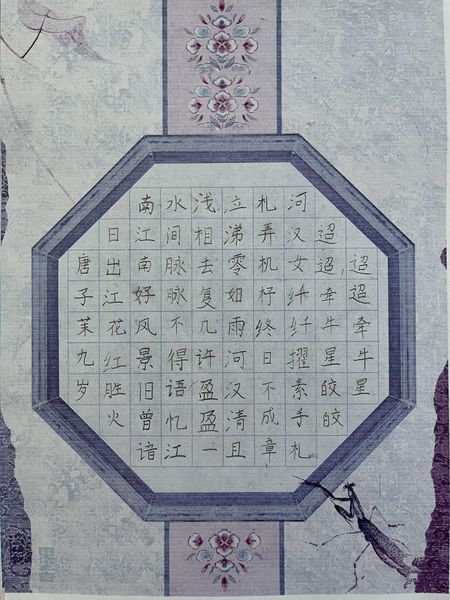 迢迢牵牛星
迢迢牵牛星皎皎
河汉女纤纤擢素手札
札弄机杼终日不成章
泣涕零如雨河汉清且
浅相去复几许盈盈一
水间脉脉不得语忆江
南江南好风景旧曾谙
日出江花红胜火
唐子茉九岁